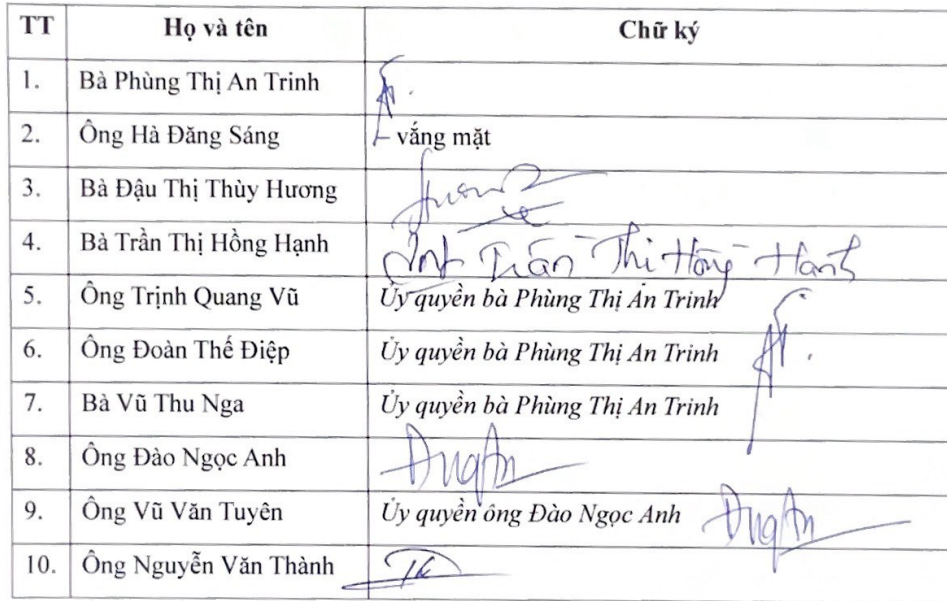 TT Họ và tên Chữ ký
1. Bà Phùng Thị An Trinh
2. Ông Hà Đăng Sáng - vắng mặt
3. Bà Đậu Thị Thùy Hương
4. Bà Trần Thị Hồng Hạnh Trần Thị Hồng Hạnh
5. Ông Trịnh Quang Vũ Ủy quyền bà Phùng Thị An Trinh
6. Ông Đoàn Thế Điệp Ủy quyền bà Phùng Thị An Trinh
7. Bà Vũ Thu Nga Ủy quyền bà Phùng Thị An Trinh
8. Ông Đào Ngọc Anh
9. Ông Vũ Văn Tuyên Ủy quyền ông Đào Ngọc Anh
10. Ông Nguyễn Văn Thành